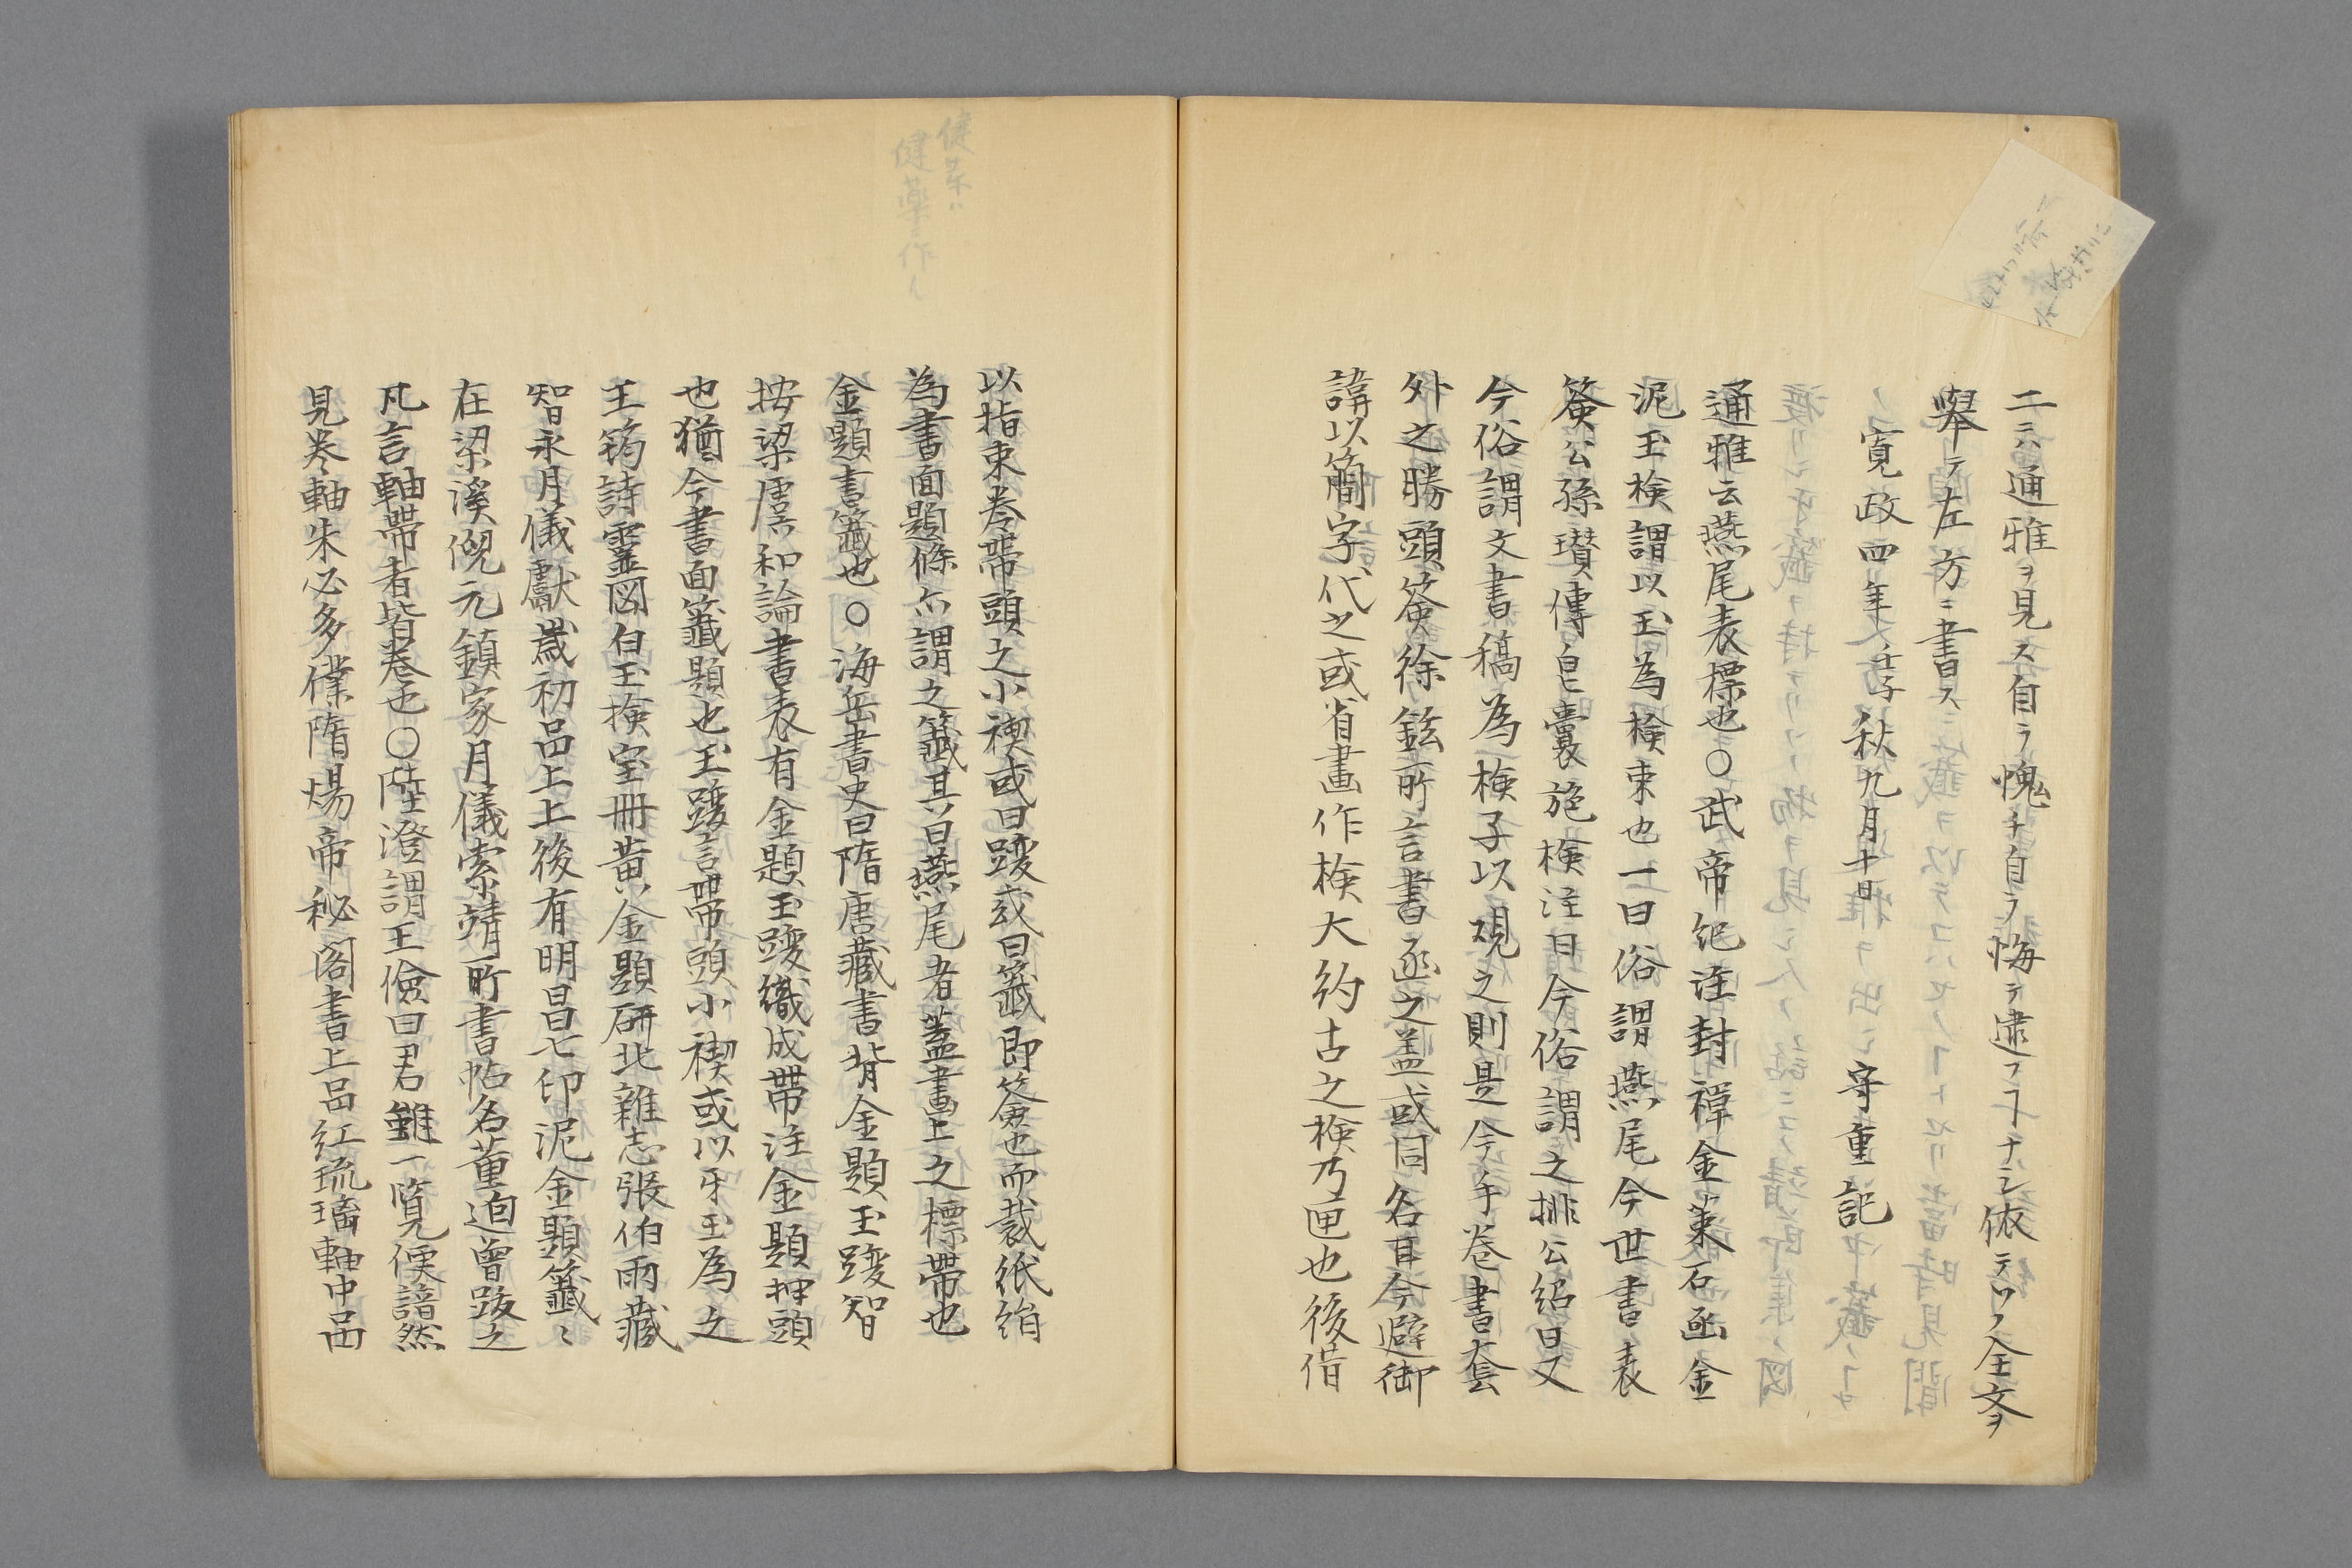 二ニハ通雅ヲ見ス自ラ愧チ自ラ悔テ逮フヿナシ依テソノ全文ヲ
舉テ左方ニ書ス
寛政四年壬子秋九月十日 守重記
通雅云燕尾表標也〇武帝紀注封禪金策石函金
泥玉検謂以玉為検束也一曰俗謂燕尾今世書表
簽公孫瓚傳皂嚢施検注曰今俗謂之排公紹曰又
今俗謂文書稿為検子以規之則是今手卷書套
外之勝頭簽徐鉉所言書函之盖或同名耳今避御
諱以簡字代之或省畫作検大約古之検乃匣也後借
以指束卷帶頭之小楔或曰躞或曰籤即簽也而裁紙絹
為書面題條亦謂之籤其曰燕尾者蓋書上之標帶也
金題書籤也〇海岳書史曰隋唐藏書背金題玉躞智
按梁虞和論書表有金題玉躞織成帶注金題押頭
也猶今書面籤題也玉躞言帶頭小楔或以牙玉為之
王筠詩靈図白玉検宝冊黄金題研北雜志張伯雨藏
智永月儀獻歳初品上上後有明昌七印泥金題籤〻
在梁溪倪元鎮家月儀索靖所書帖名董逌曽跋之
凡言軸帶者皆卷也〇陸澄謂王儉曰君雖一覧便諳然
見卷軸未必多僕隋煬帝秘閣書上品紅琉璃軸中品
健策ハ
健藥作ル